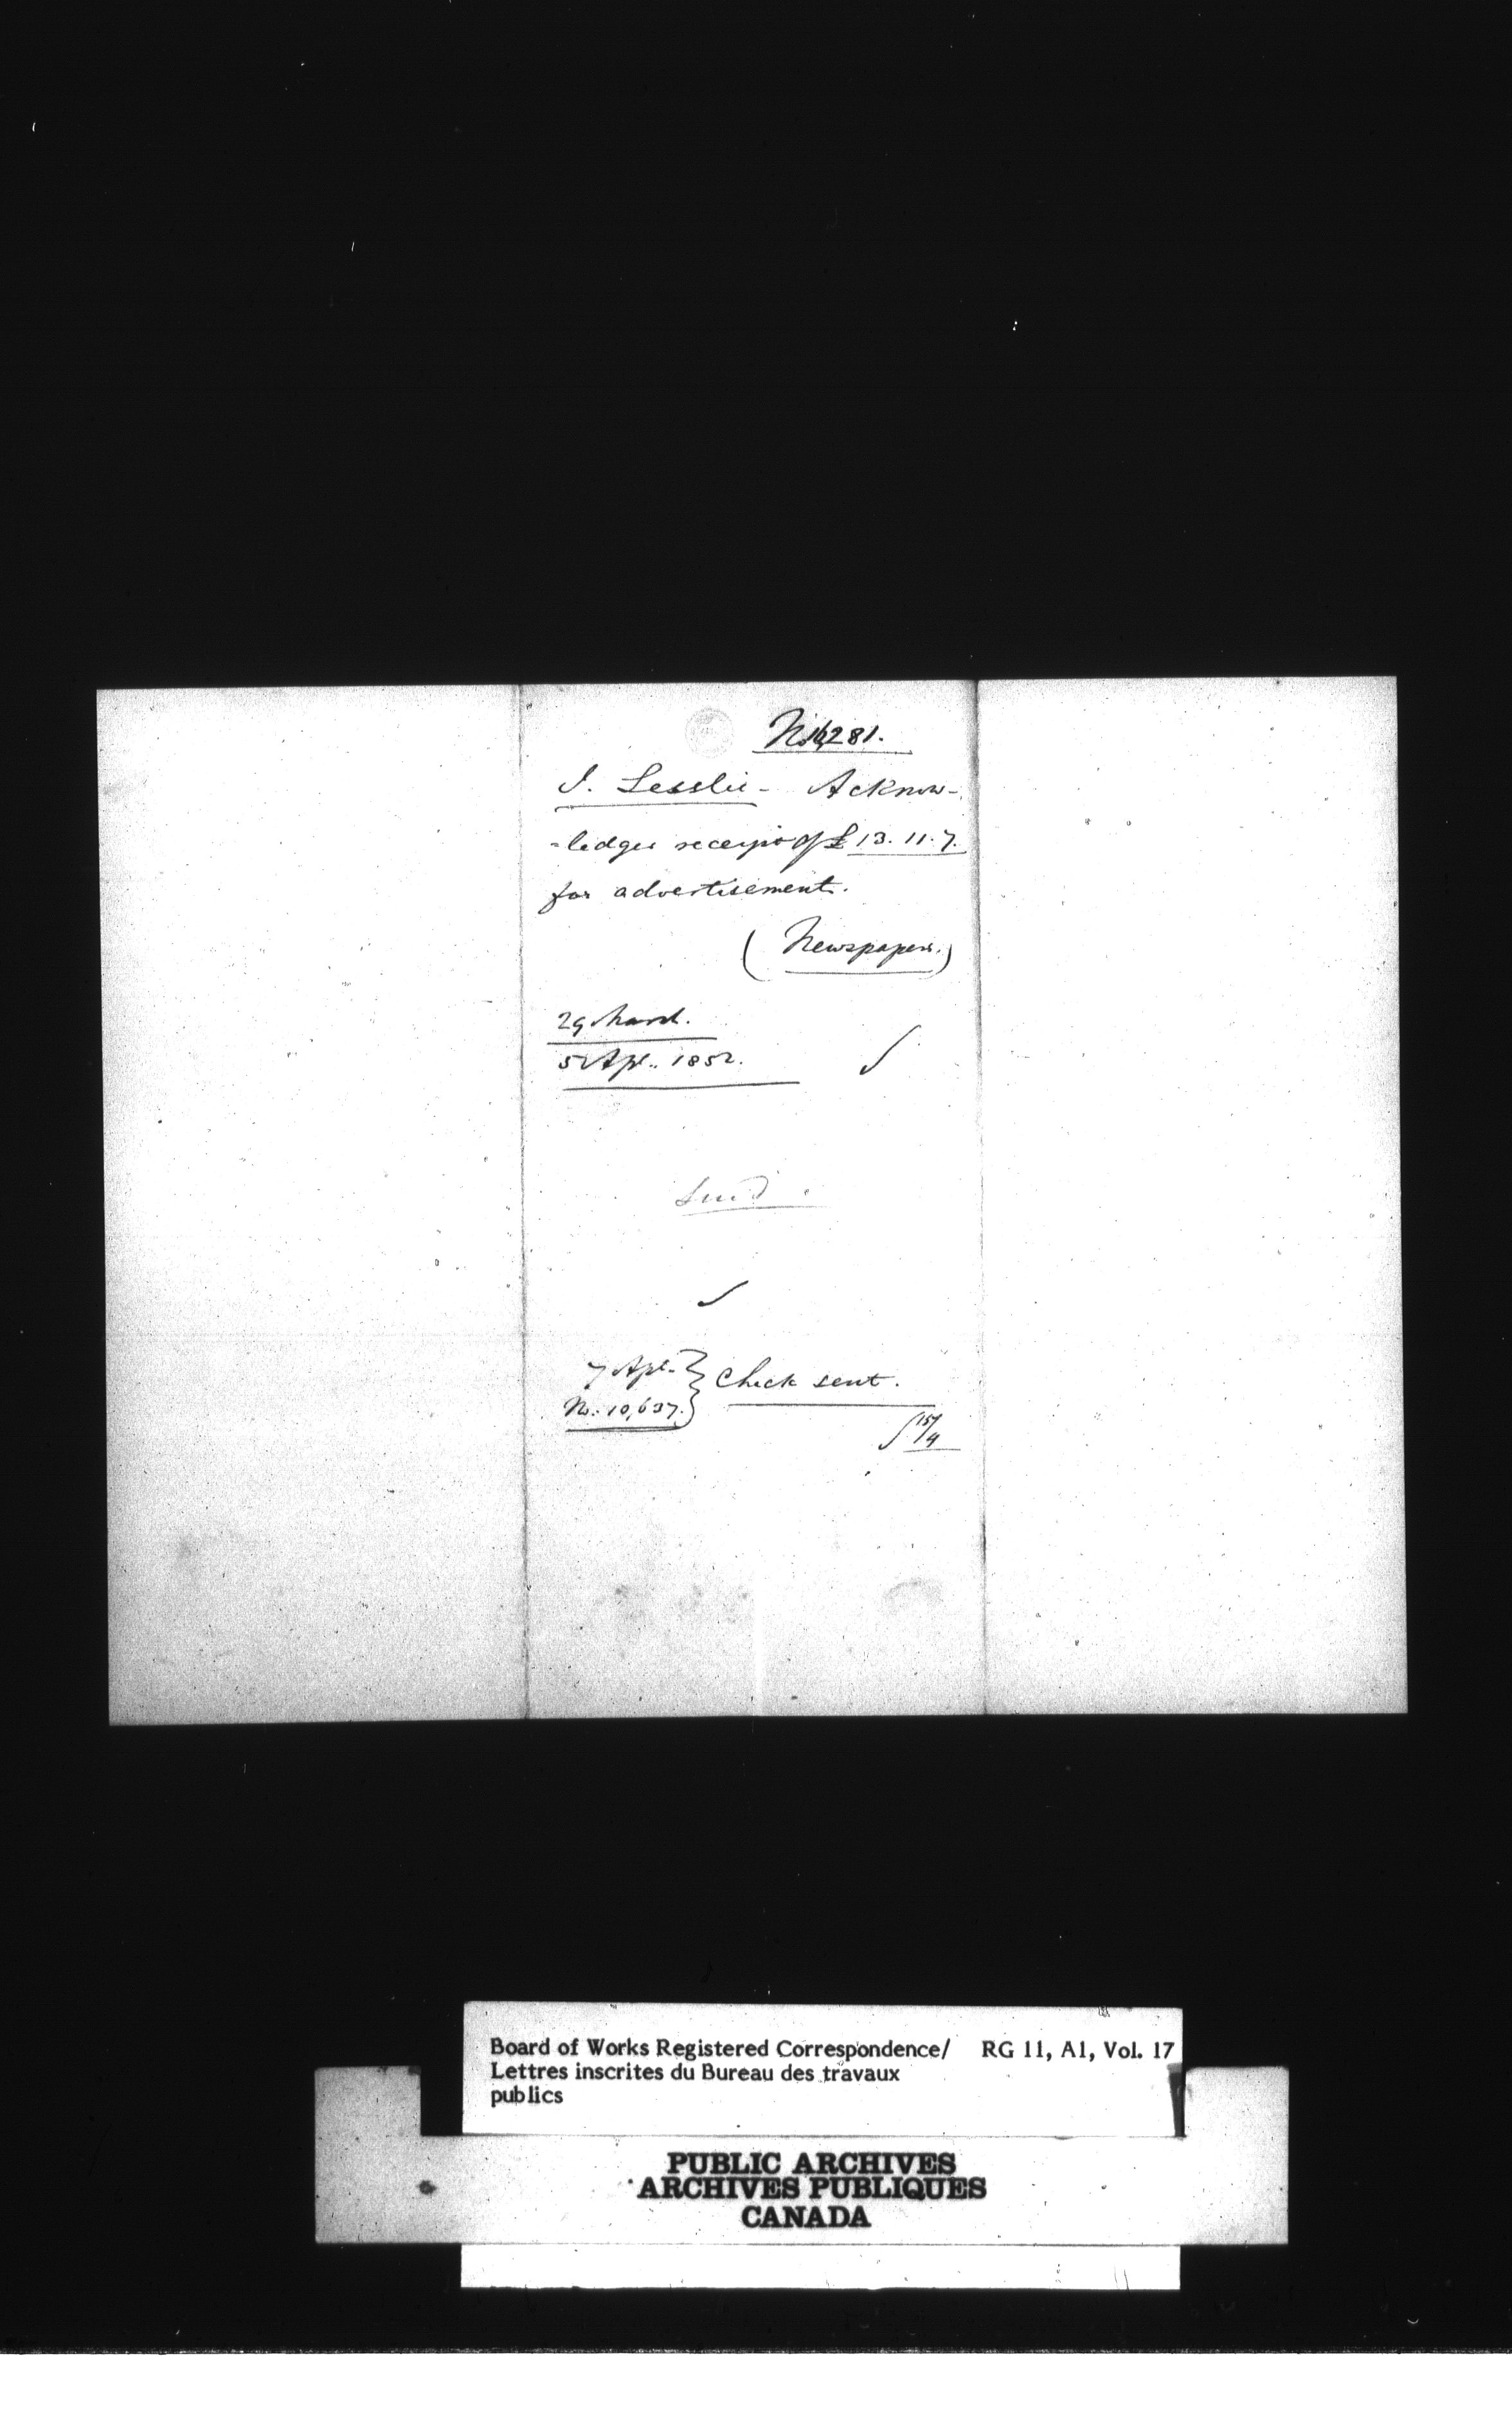 No. 16,281.
J. Lesslie - Acknow-
=ledges receipt of £13.11.7.
for advertisement.
(Newspapers.)
29 March.
5 Apl. 1852.
7 Apl. } Check sent.
No. 10,637. }
15/4
Board of Works Registered Correspondence/ RG 11, A1, Vol. 17
Lettres inscrites du Bureau des travaux
publics
PUBLIC ARCHIVES
ARCHIVES PUBLIQUES
CANADA